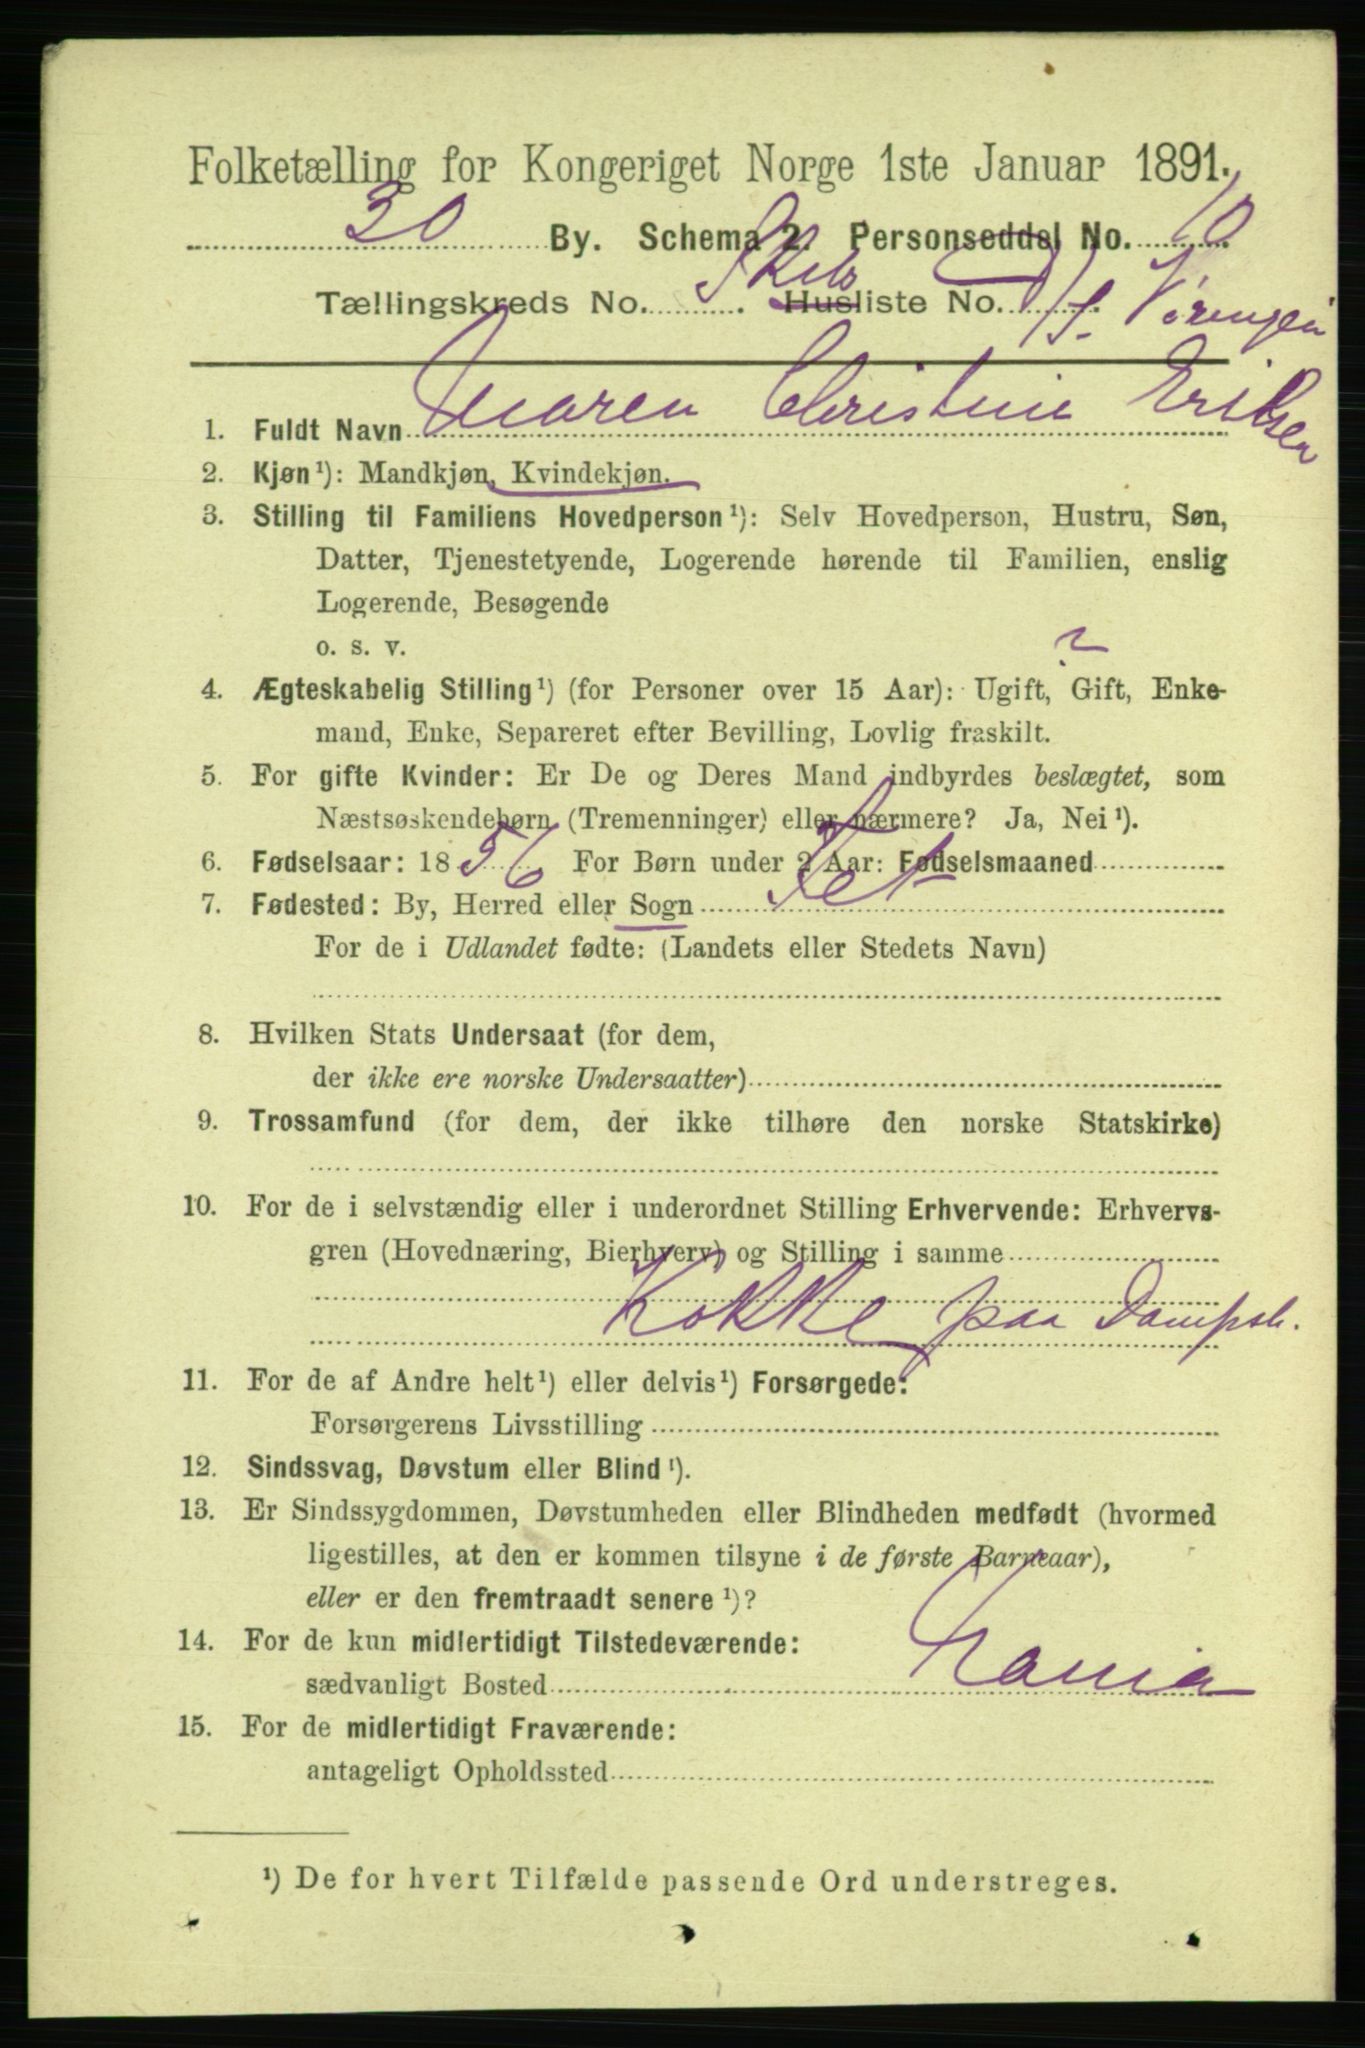 Folketælling for Kongeriget Norge 1ste Januar 1891.
30 By. Schema 2. Personseddel No. 10
Tællingskreds No. Skib Husliste No. D/S. Vøringen
1. Fuldt Navn Maren Christine Eriksen
2. Kjøn ¹): Mandkjøn, Kvindekjøn.
3. Stilling til Familiens Hovedperson ¹): Selv Hovedperson, Hustru, Søn,
Datter, Tjenestetyende, Logerende hørende til Familien, enslig
Logerende, Besøgende
o. s. v.
?
4. Ægteskabelig Stilling ¹) (for Personer over 15 Aar): Ugift, Gift, Enke-
mand, Enke, Separeret efter Bevilling, Lovlig fraskilt.
5. For gifte Kvinder: Er De og Deres Mand indbyrdes beslægtet, som
Næstsøskendebørn (Tremenninger) eller nærmere? Ja, Nei ¹).
6. Fødselsaar: 1856 For Børn under 2 Aar: Fødselsmaaned
7. Fødested: By, Herred eller Sogn Fet
For de i Udlandet fødte: (Landets eller Stedets Navn)
8. Hvilken Stats Undersaat (for dem,
der ikke ere norske Undersaatter)
9. Trossamfund (for dem, der ikke tilhøre den norske Statskirke)
10. For de i selvstændig eller i underordnet Stilling Erhvervende: Erhvervs-
gren (Hovednæring, Bierhverv) og Stilling i samme
Kokke paa Dampsk.
11. For de af Andre helt ¹) eller delvis ¹) Forsørgede:
Forsørgerens Livsstilling
12. Sindssvag, Døvstum eller Blind ¹).
13. Er Sindssygdommen, Døvstumheden eller Blindheden medfødt (hvormed
ligestilles, at den er kommen tilsyne i de første Barneaar),
eller er den fremtraadt senere ¹)?
14. For de kun midlertidigt Tilstedeværende:
sædvanligt Bosted
15. For de midlertidigt Fraværende:
antageligt Opholdssted
¹) De for hvert Tilfælde passende Ord understreges.